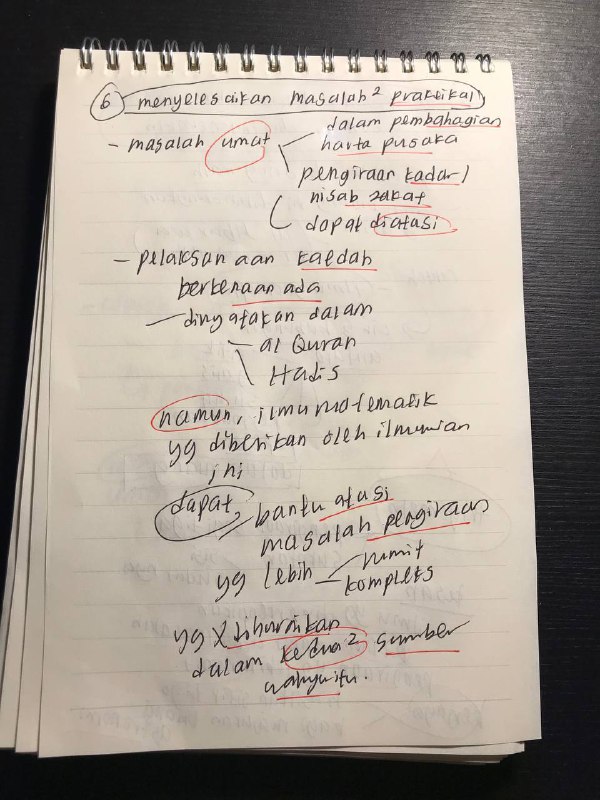 6 menyelesaikan masalah² praktikal
- masalah umat
dalam pembahagian
harta pusaka
pengiraan kadar/
nisab zakat
dapat diatasi
- pelaksanaan kaedah
berkenaan ada
- dinyatakan dalam
- al Quran
\ Hadis
namun, ilmu matematik
yg diberikan oleh ilmuwan
ini
dapat,
bantu atasi
masalah pengiraan
yg lebih
rumit
kompleks
yg X dihuraikan
dalam kedua² sumber
wahyu itu.